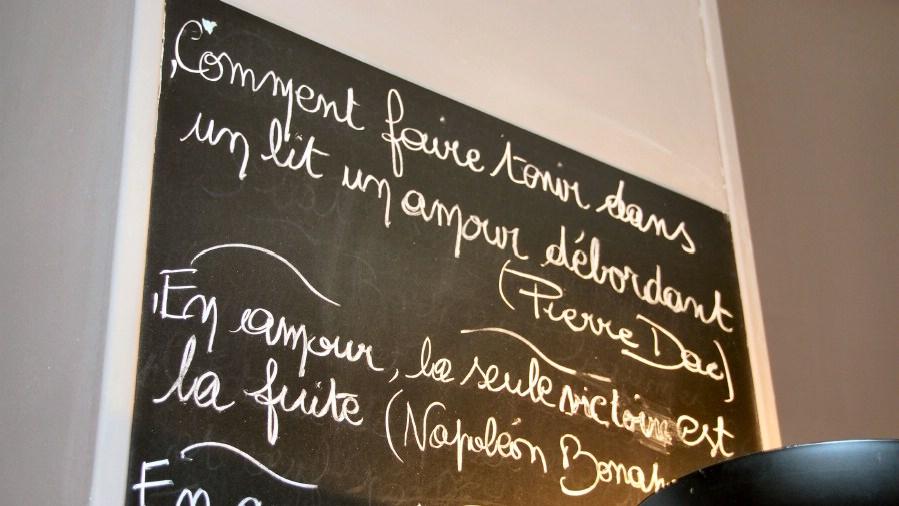 Comment faire tenir dans
un lit un amour débordant
(Pierre Dac)
En amour, la seule victoire est
la fuite (Napoléon Bona
En a